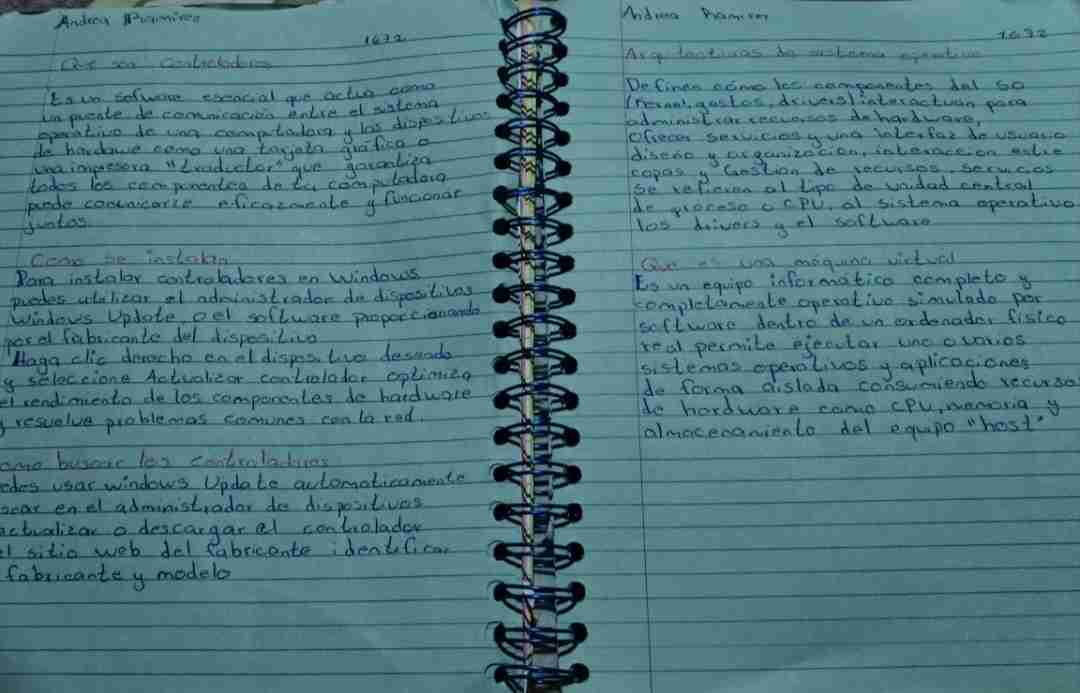 Andrea Ramirez
1672
Que son Controladores
Es un sofware esencial que actua como
un puente de comunicación entre el sistema
operativo de una computadora y los dispositivos
de hardawe como una tarjeta grafica o
una impresora "traductor" que garantiza
todos los componentes de tu computadora
puede comunicarse eficazmente y funcionar
juntos.
Como se instalan
Para instalar controladores en Windows
puedes utilizar el administrador de dispositivos
Windows Update, o el software proporcionando
por el fabricante del dispositivo
Haga clic derecho en el dispositivo deseado
y seleccione Actualizar controlador optimiza
el rendimiento de los componentes de hardware
y resuelve problemas comunes con la red.
omo buscar los controladores
edes usar windows Update automaticamente
scar en el administrador de dispositivos
actualizar o descargar el controlador
el sitio web del fabricante identificar
fabricante y modelo
Andrea Ramirez
1672
Arquitectivas de sistema operativo
Definen cómo los componentes del SO
(Kernel, gestos, drivers) interactuan para
administrar recursos de hardware,
Ofrecer servicios y una interfaz de usuario
diseño y organización, interaccion entre
capas y Gestion de recursos, servicios
Se refieren al tipo de unidad central
de proceso o CPU, al sistema operativo
los drivers y el software
Que es una máquina virtual
Es un equipo informático completo y
completamente operativo simulado por
software dentro de un ordenador físico
real permite ejecutar uno o varios
sistemas operativos y aplicaciones
de forma aislada consumiendo recursos
de hardware como CPU, memoria y
almacenamiento del equipo "host"